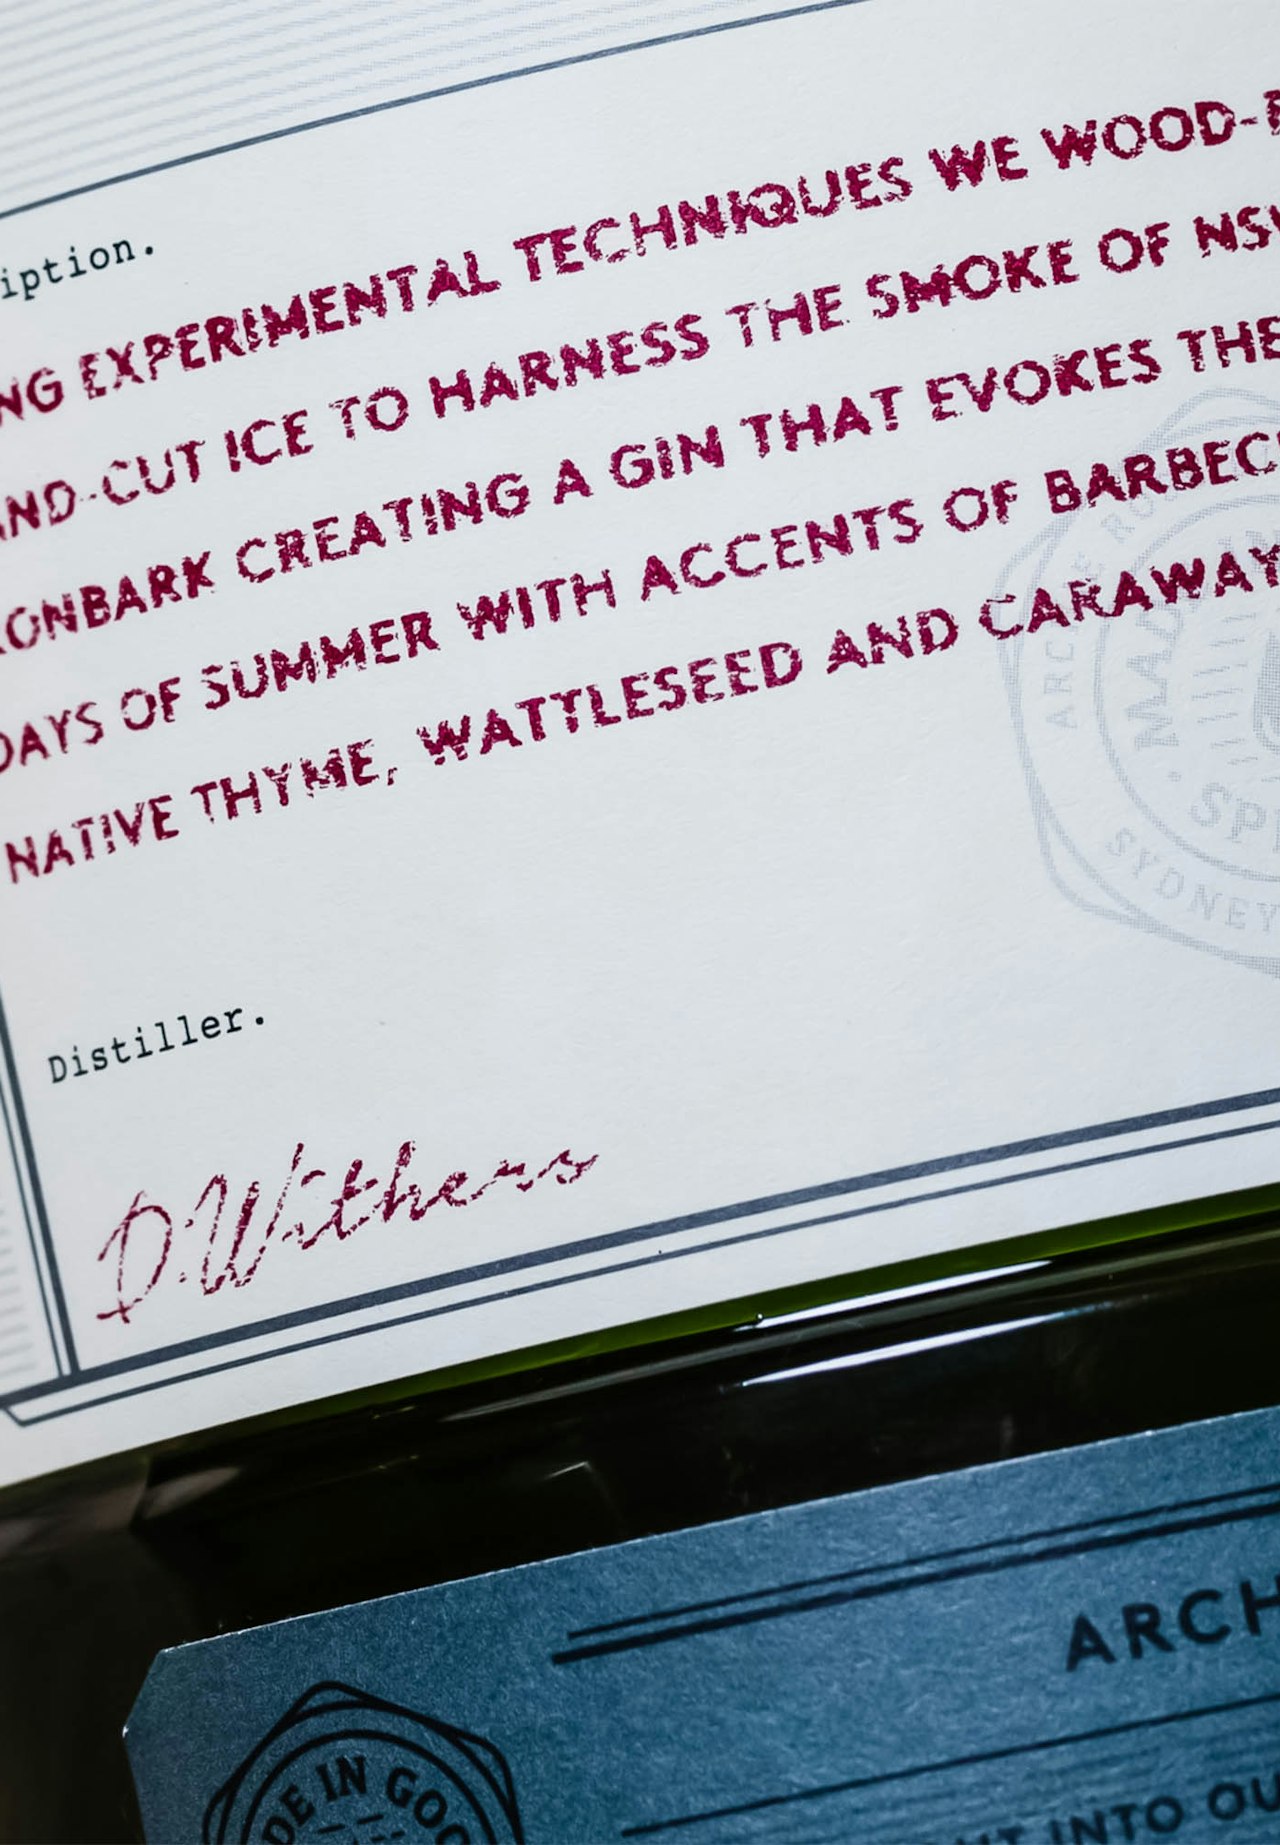 iption.
NG EXPERIMENTAL TECHNIQUES WE WOOD-
AND-CUT ICE TO HARNESS THE SMOKE OF NSW
RONBARK CREATING A GIN THAT EVOKES THE
DAYS OF SUMMER WITH ACCENTS OF BARBEC
NATIVE THYME, WATTLESEED AND CARAWAY
ARCHIE RO
MADE IN
SPI
SYDNEY
Distiller.
D.Withers
ARCH
DE IN GOO
INTO OU